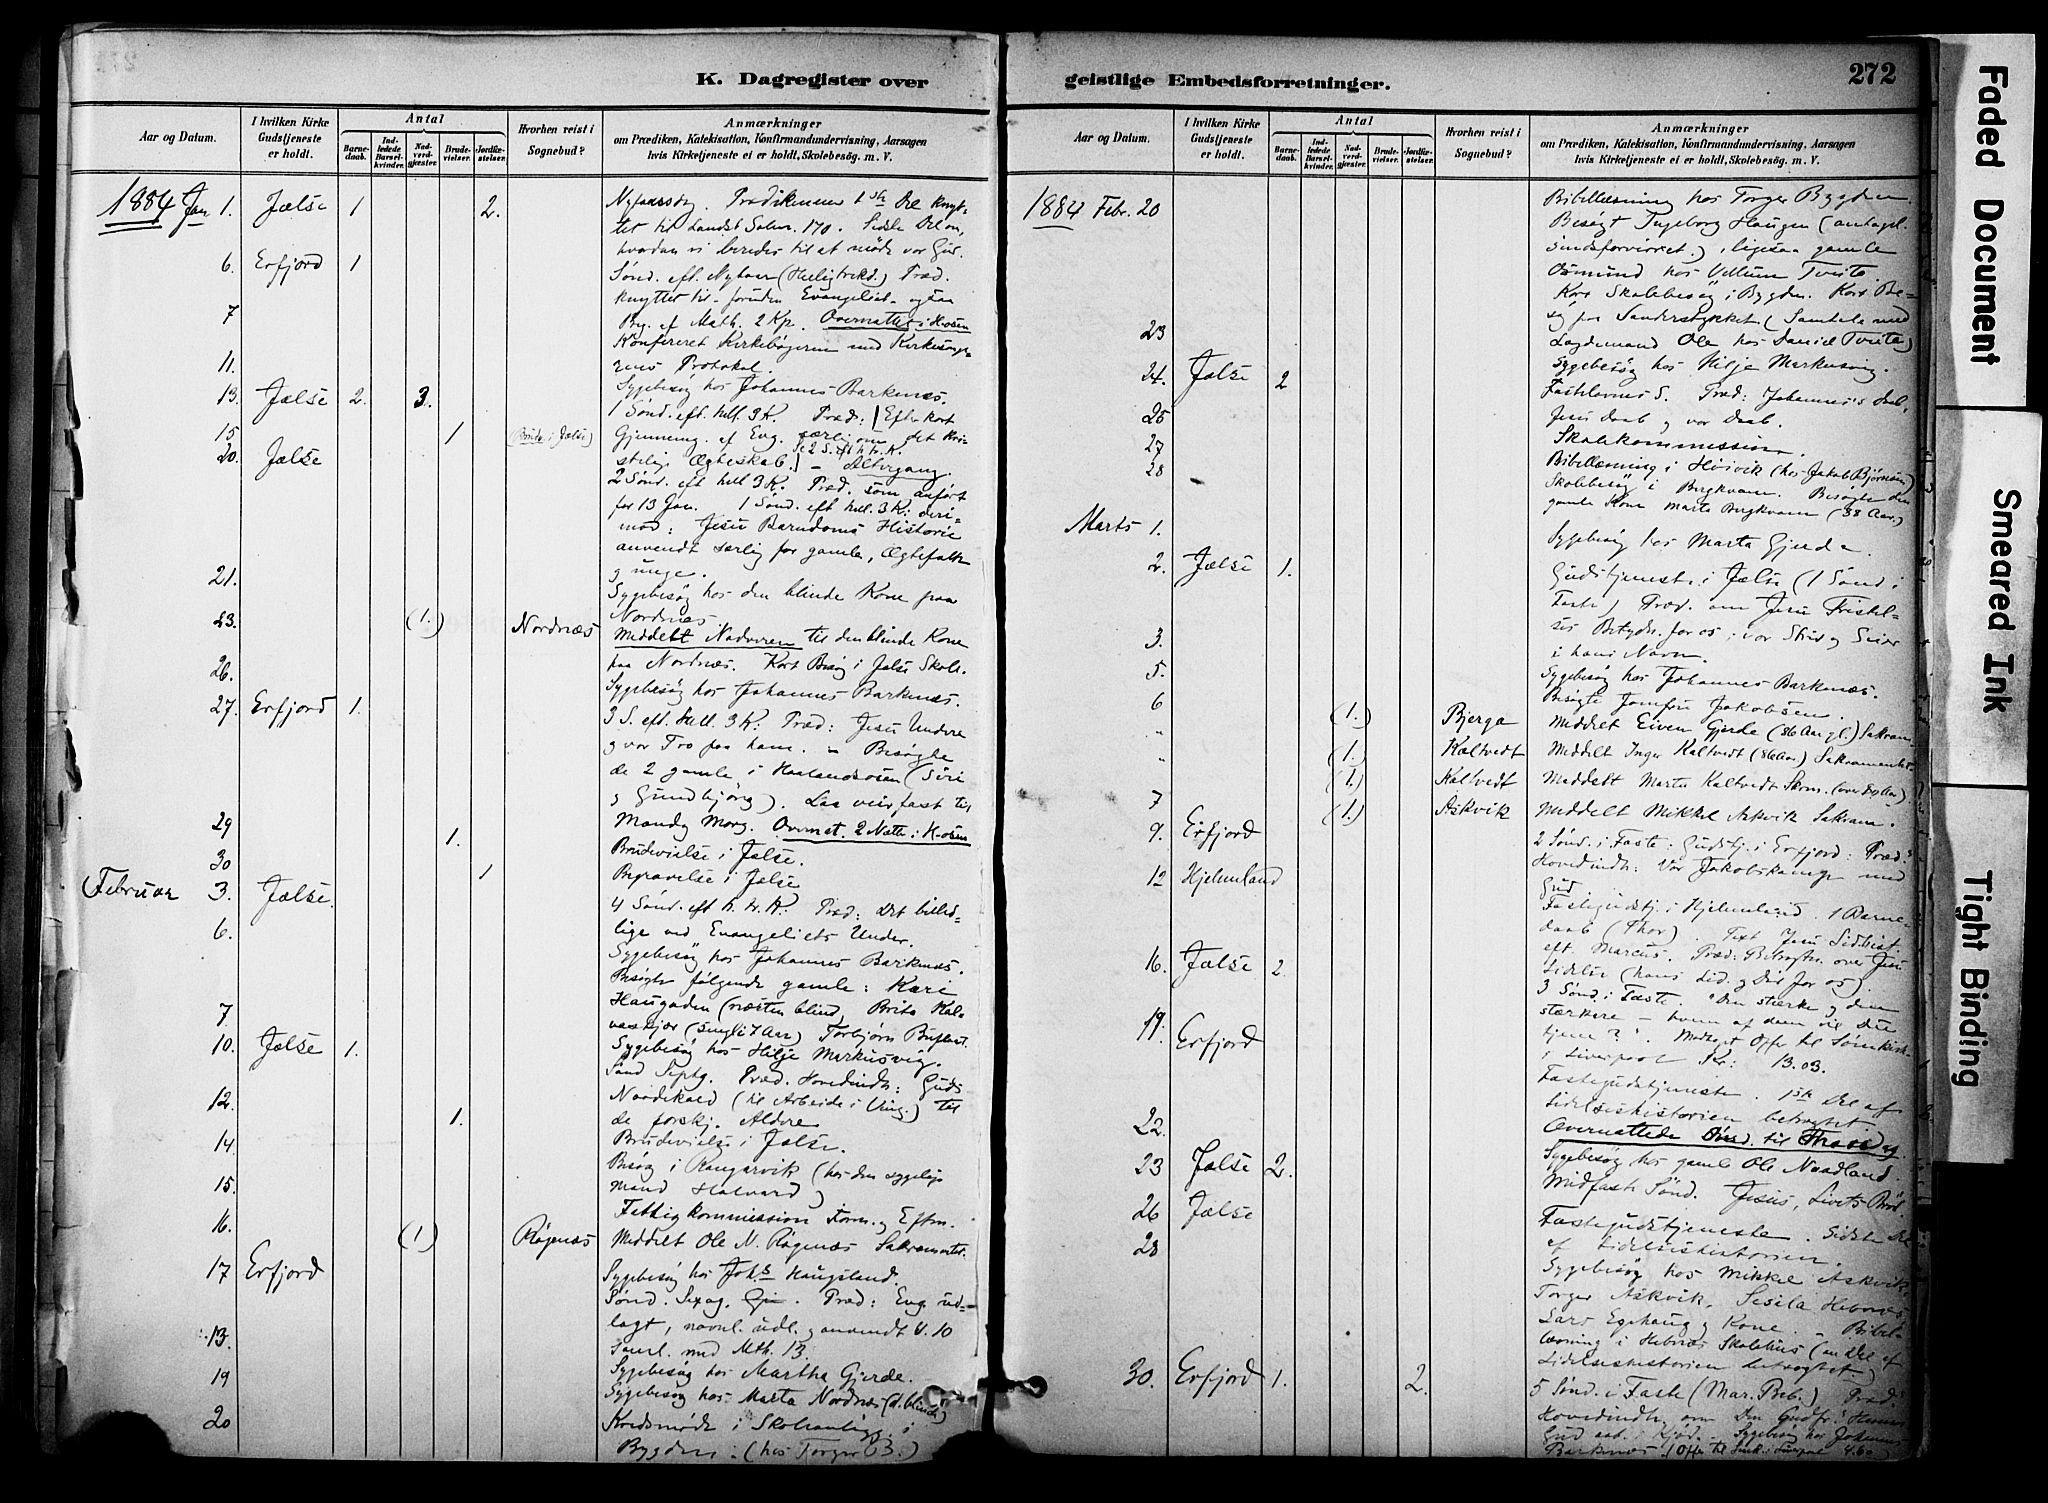 K. Dagregister over
Aar og Datum.
I hvilken Kirke Gudstjeneste er holdt.
Antal
Barnedaab.
Indledede Barselkvinder.
Nadverdgjæster.
Brudevielser.
Jordfæstelser.
Hvorhen reist i Sognebud?
Anmærkninger
om Prædiken, Katekisation, Konfirmandundervisning, Aarsagen
hvis Kirketjeneste ei er holdt, Skolebesög. m. V.
1884 Jan 1. Jælse 1 2. Nytaarsdag. Prædikenen 1ste Del knyt-
tet til Landst. Salme. 170. Sidste Del om,
hvordan vi beredes til at møde vor Gud.
6. Erfjord 1 Sønd. eft. Nytaar (Hellig trekd.) Præd.
knyttet til foruden Evangeliet ogsaa
7 Beg. af Math. 2 Kp. Overnattet i H-osen
Konfereret Kirkebøgerne med Kirkesange-
rens Protokol.
11. Sygebesøg hos Johannes Barkenæs.
13. Jælse 2. 3. 1 Sønd. eft. hell. 3 K. Præd: Efter kort
15 1 (Brudev. i Jælse) Gjennemg. af Evg. særlig om det kri-
20. Jælse stelig Ægteskab. – Altergang.
2 Sønd. eft hell 3 K. Præd. som anført
for 13 Jan. 1 Sønd. eft hell. 3 K. deri-
mod: Jesu Barndoms Historie
anvendt særlig for gamle, Ægtefolk
g unge.
21. Sygebesøg hos den blinde Kone paa
Nordnæs.
23. (1.) Nordnæs Meddelt Nadveren til den blinde Kone
paa Nordnæs. Kort Besøg i Jælse Skole.
26. Sygebesøg hos Johannes Barkenæs.
27. Erfjord 1. 3 S. eft. hell. 3 K. Præd: Jesu Undere
g vor Tro paa ham. – Besøgte
de 2 gamle i Haalandsosen (Siri
g Gundbjörg). Laa veirfast til
Mandag Morg. Overnat. 2 Nætt. i H-osen
29 1. Brudevielse i Jælse.
30 1 Begravelse i Jælse
Februar 3. Jælse. 4 Sønd. eft h. tr. K. Præd: Det billed-
lige ved Evangeliets Under.
6. Sygebesøg hos Johannes Barkenæs.
Besøgt følgende gamle: Kari
Haugaden (næsten blind, Brita Kal-
7 Torbjørn
Sygebesøg hos Hilje Markusvig.
10. Jælse 1. Sønd Septg. Præd. Hovedindh: Guds
Naadekald (til Arbeide i Ving.) til
de forskj. Aldre
12. 1. Brudevielse i Jælse.
14. Besøg i Rangarvik (hos den sygelige
Mand Halvard)
15. Fattigkommission Form. g Eftm.
16. (1) Røgenæs Meddelt Ole N. Røgenæs Sakramentet.
Sygebesøg hos Johs Haugsland.
17 Erfjord Sønd. Sexag. Præd: Evg. ud-
lagt, navnl. udl. g anvendt V. 10
Saml. med Mth. 13.
13. Sygebesøg hos Martha Gjerde.
19 Sygebesøg hos Marta Nordnæs (d. blinde)
20 Kredsmøde i Skoleanligg. i
Bygden: (hos Torger B.)
geistlige Embedsforretninger.
272
Aar og Datum.
I hvilken Kirke Gudstjeneste er holdt.
Antal
Barnedaab.
Indledede Barselkvinder.
Nadverdgjæster.
Brudevielser.
Jordfæstelser.
Hvorhen reist i Sognebud?
Anmærkninger
om Prædiken, Katekisation, Konfirmandundervisning, Aarsagen
hvis Kirketjeneste ei er holdt, Skolebesög. m. V.
1884 Febr. 20 Bibellæsning hos Torger Bygden.
Besøgt Ingeborg Haugen (antagel.
sindsforvirret), ligesaa gamle
Osmund hos Tveite.
Kort Skolebesøg i Bygden. Kort Be-
søg paa Sanderstykket (Samtale med
Lægdemand Ole hos Daniel Tveite)
23 Sygebesøg hos Hilje Markusvig.
24. Jælse 2 Fastelavns S. Præd: Johannes's Daab,
Jesu Daab og vor Daab.
25 Skolekommission.
27 Bibellæsning i Høivik (hos Jakob Bjørnsen)
28 Skolebesøg i Bergkvam. Besøgte den
gamle Kone Marta Bergkvam (88 Aar)
Marts 1. Sygebesøg hos Marta Gjerde.
2. Jælse 1. Gudstjeneste i Jælse (1 Sønd i
Faste) Præd. om Jesu Fristel-
ses Betydn. for os i vor Strid g Seier
i hans Navn.
3. Sygebesøg hos Johannes Barkenæs.
5. Besøgte Jomfru Jakobsen.
6 (1.) Bjerga Meddelt Eiven Gjerde (86 Aar gl.) Sakram.
" (1.) Kaltvedt Meddelt Inger Kaltvedt (86 Aar) Sakramentet.
" (1.) Kaltvedt Meddelt Marta Kaltvedt Skrm.
7 (1.) Askvik Meddelt Mikkel Askvik Sakram.
9. Erfjord 2 Sønd. i Faste: Gudstj. i Erfjord: Præd:
Hovedindh: Vor Jakobskamp med
Gud
12 Hjelmeland Fastegudstj. i Hjelmeland. 1 Barne-
daab (Thor). Text Jesu Lidelhist.
eft. Marcus. Præd: Betragtn. over Jesu
Lidelse (hans Lid. g Død for os).
16. Jælse 2. 3 Sønd. i Faste. "Den stærke g den
stærkere – hvem af dem vil Du
tjene?". Modtaget Offer til Sømkirk.
i Liverpool Kr: 13.03.
19. Erfjord Fastegudstjeneste. 1ste Del af
Lidelseshistorien betragtet
Overnattede Onsd. til Thorsdag.
22. Sygebesøg hos gamle Ole Naadland.
23 Jælse 2. Midfaste Sønd. Jesus, Livets Brød.
26 Jælse Fastegudstjeneste. Sidste Del
af Lidelseshistorien.
28 Sygebesøg hos Mikkel Askvik,
Torger Askvik, Sesila Hebnes
Lars Egehaug g Kone. – Bibel-
læsning i Hebnes Skolehus (en Del af
Lidelseshistorien betragtet.)
30. Erfjord 1. 2. 5 Sønd. i Faste (Mar. Beb.) Præd.
Hovedindh. om Den Gudfr.
Gud aab. i Kjød. – Sygebesøg hos Johannes
Barkenæs (Offer til Sømk. i Liverpool 4.60)
Faded Document
Smeared Ink
Tight Binding